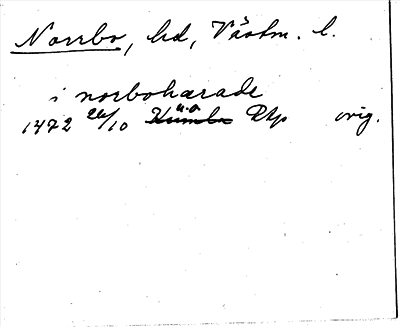 Norrbo, hd, Västm. l.
i norbohærade
1472 26/10 u.o. Dhp orig.